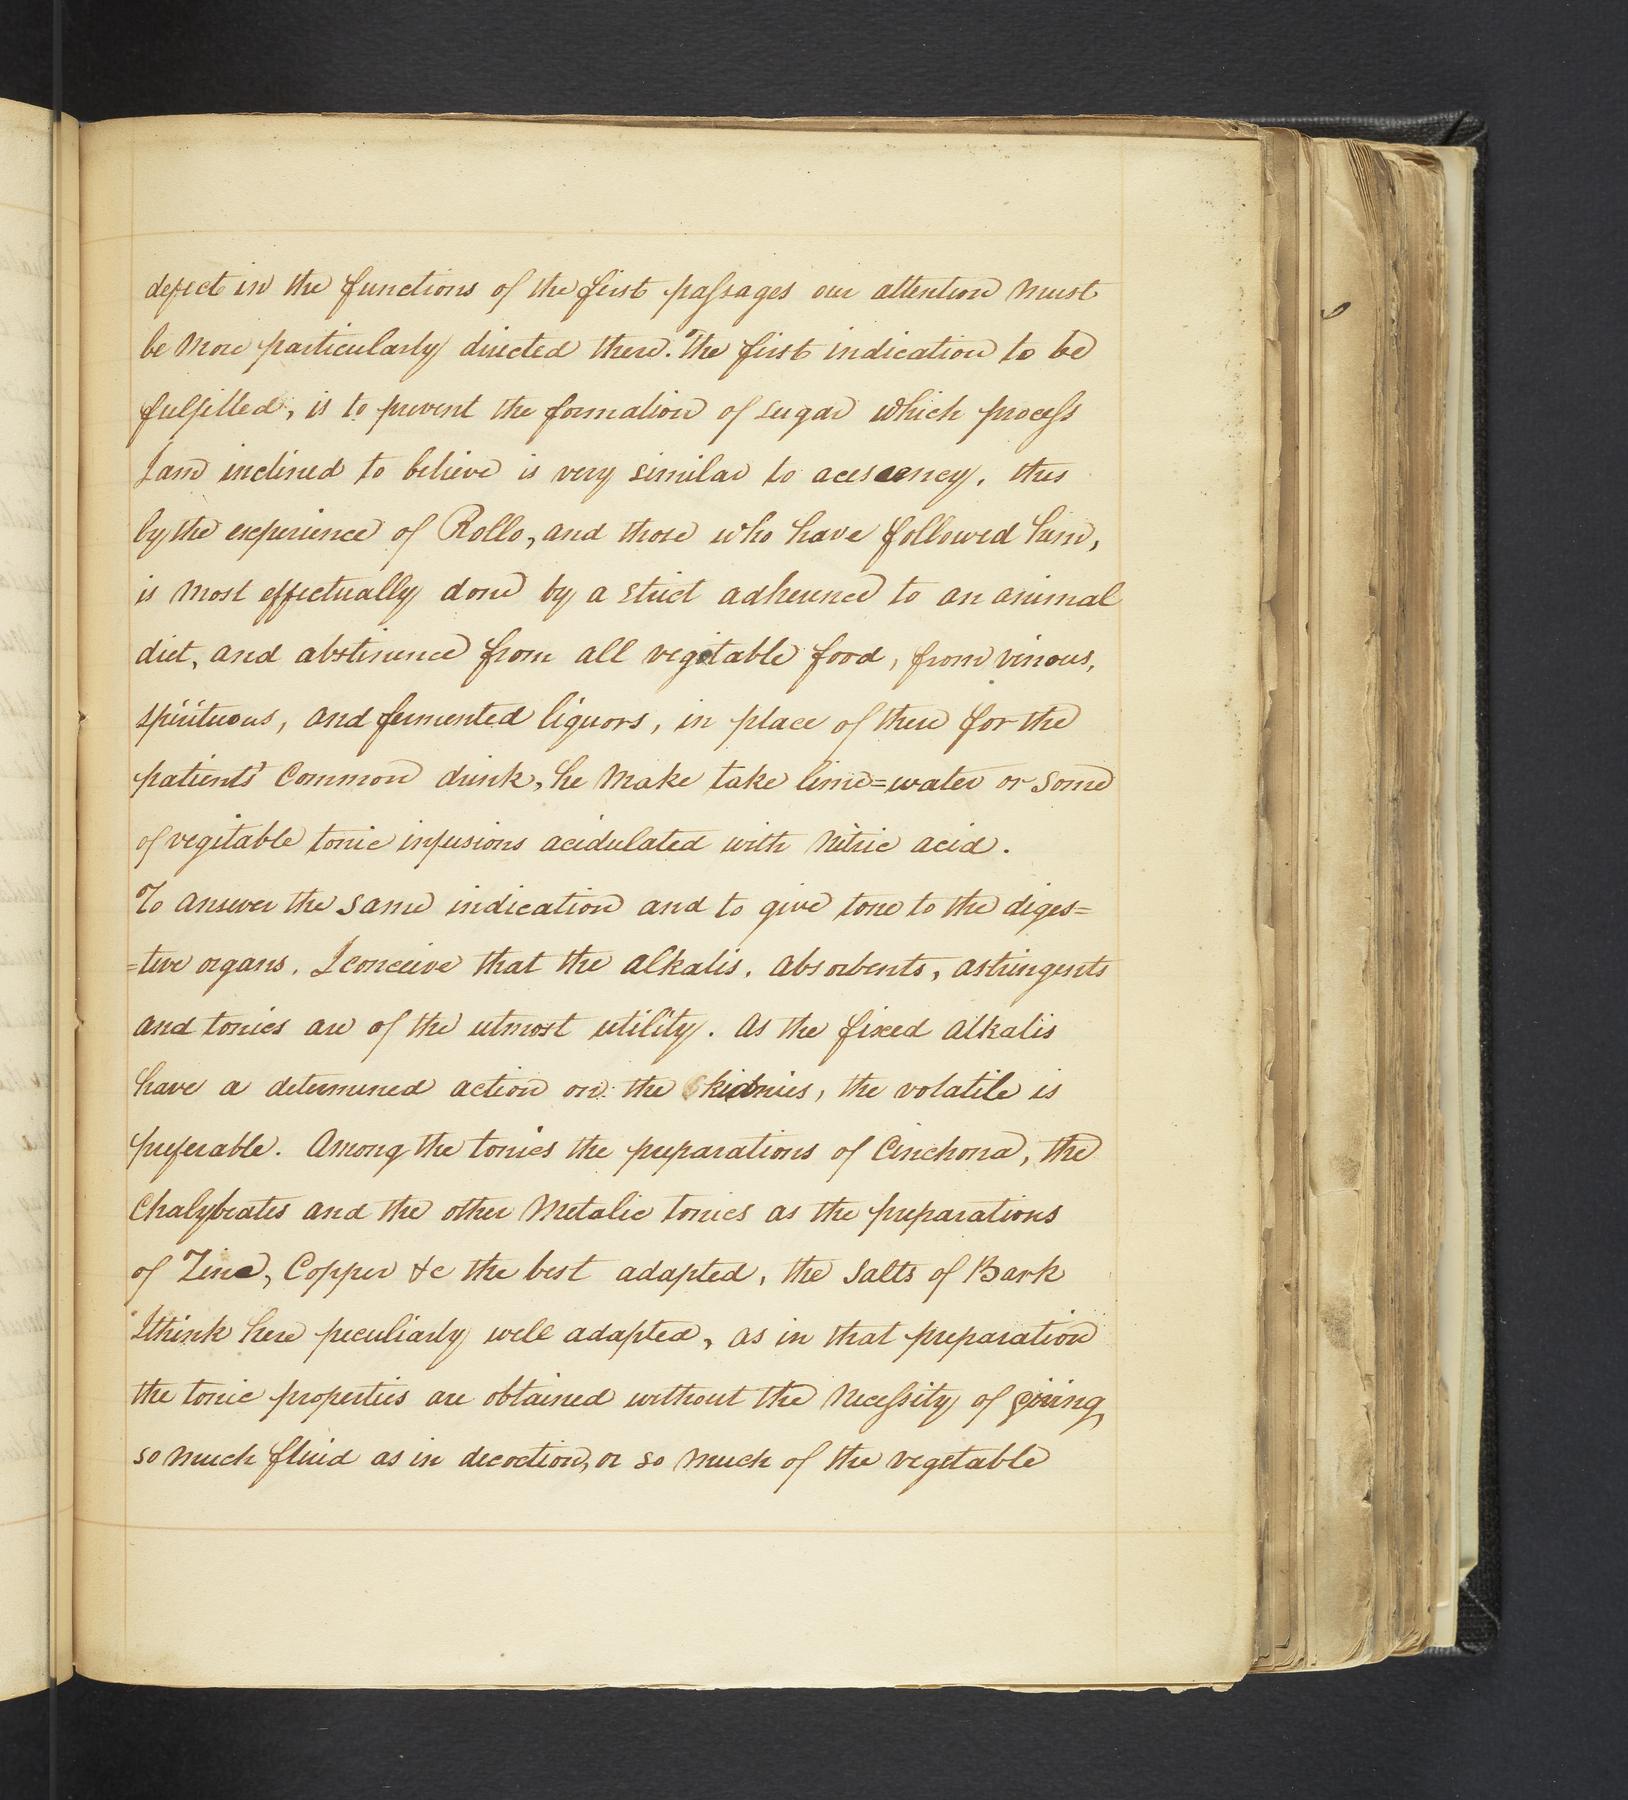 defect in the functions of the first passages our attention must
be more particularly directed there. The first indication to be
fulfilled, is to prevent the formation of sugar which process
I am inclined to believe is very similar to acescency, this
by the experience of Rollo, and those who have followed him,
is most effectually done by a strict adherence to an animal
diet, and abstinence from all vegetable food, from vinous,
spirituous, and fermented liquors, in place of these for the
patients' common drink, he make take lime=water or some
of vegitable tonic infusions acidulated with Nitric acid.
To answer the same indication and to give tone to the diges=
=tive organs, I conceive that the alkalis, absorbents, astringents
and tonics are of the utmost utility. As the fixed alkalis
have a determined action on the kidnies, the volatile is
preferable. Among the tonics the preparations of Cinchona, the
Chalybeates and the other Metalic tonics as the preparations
of Zinc, Copper &c the best adapted, the Salts of Bark
I think here peculiarly well adapted, as in that preparation
the tonic properties are obtained without the necessity of giving
so much fluid as in decoction, or so much of the vegetable